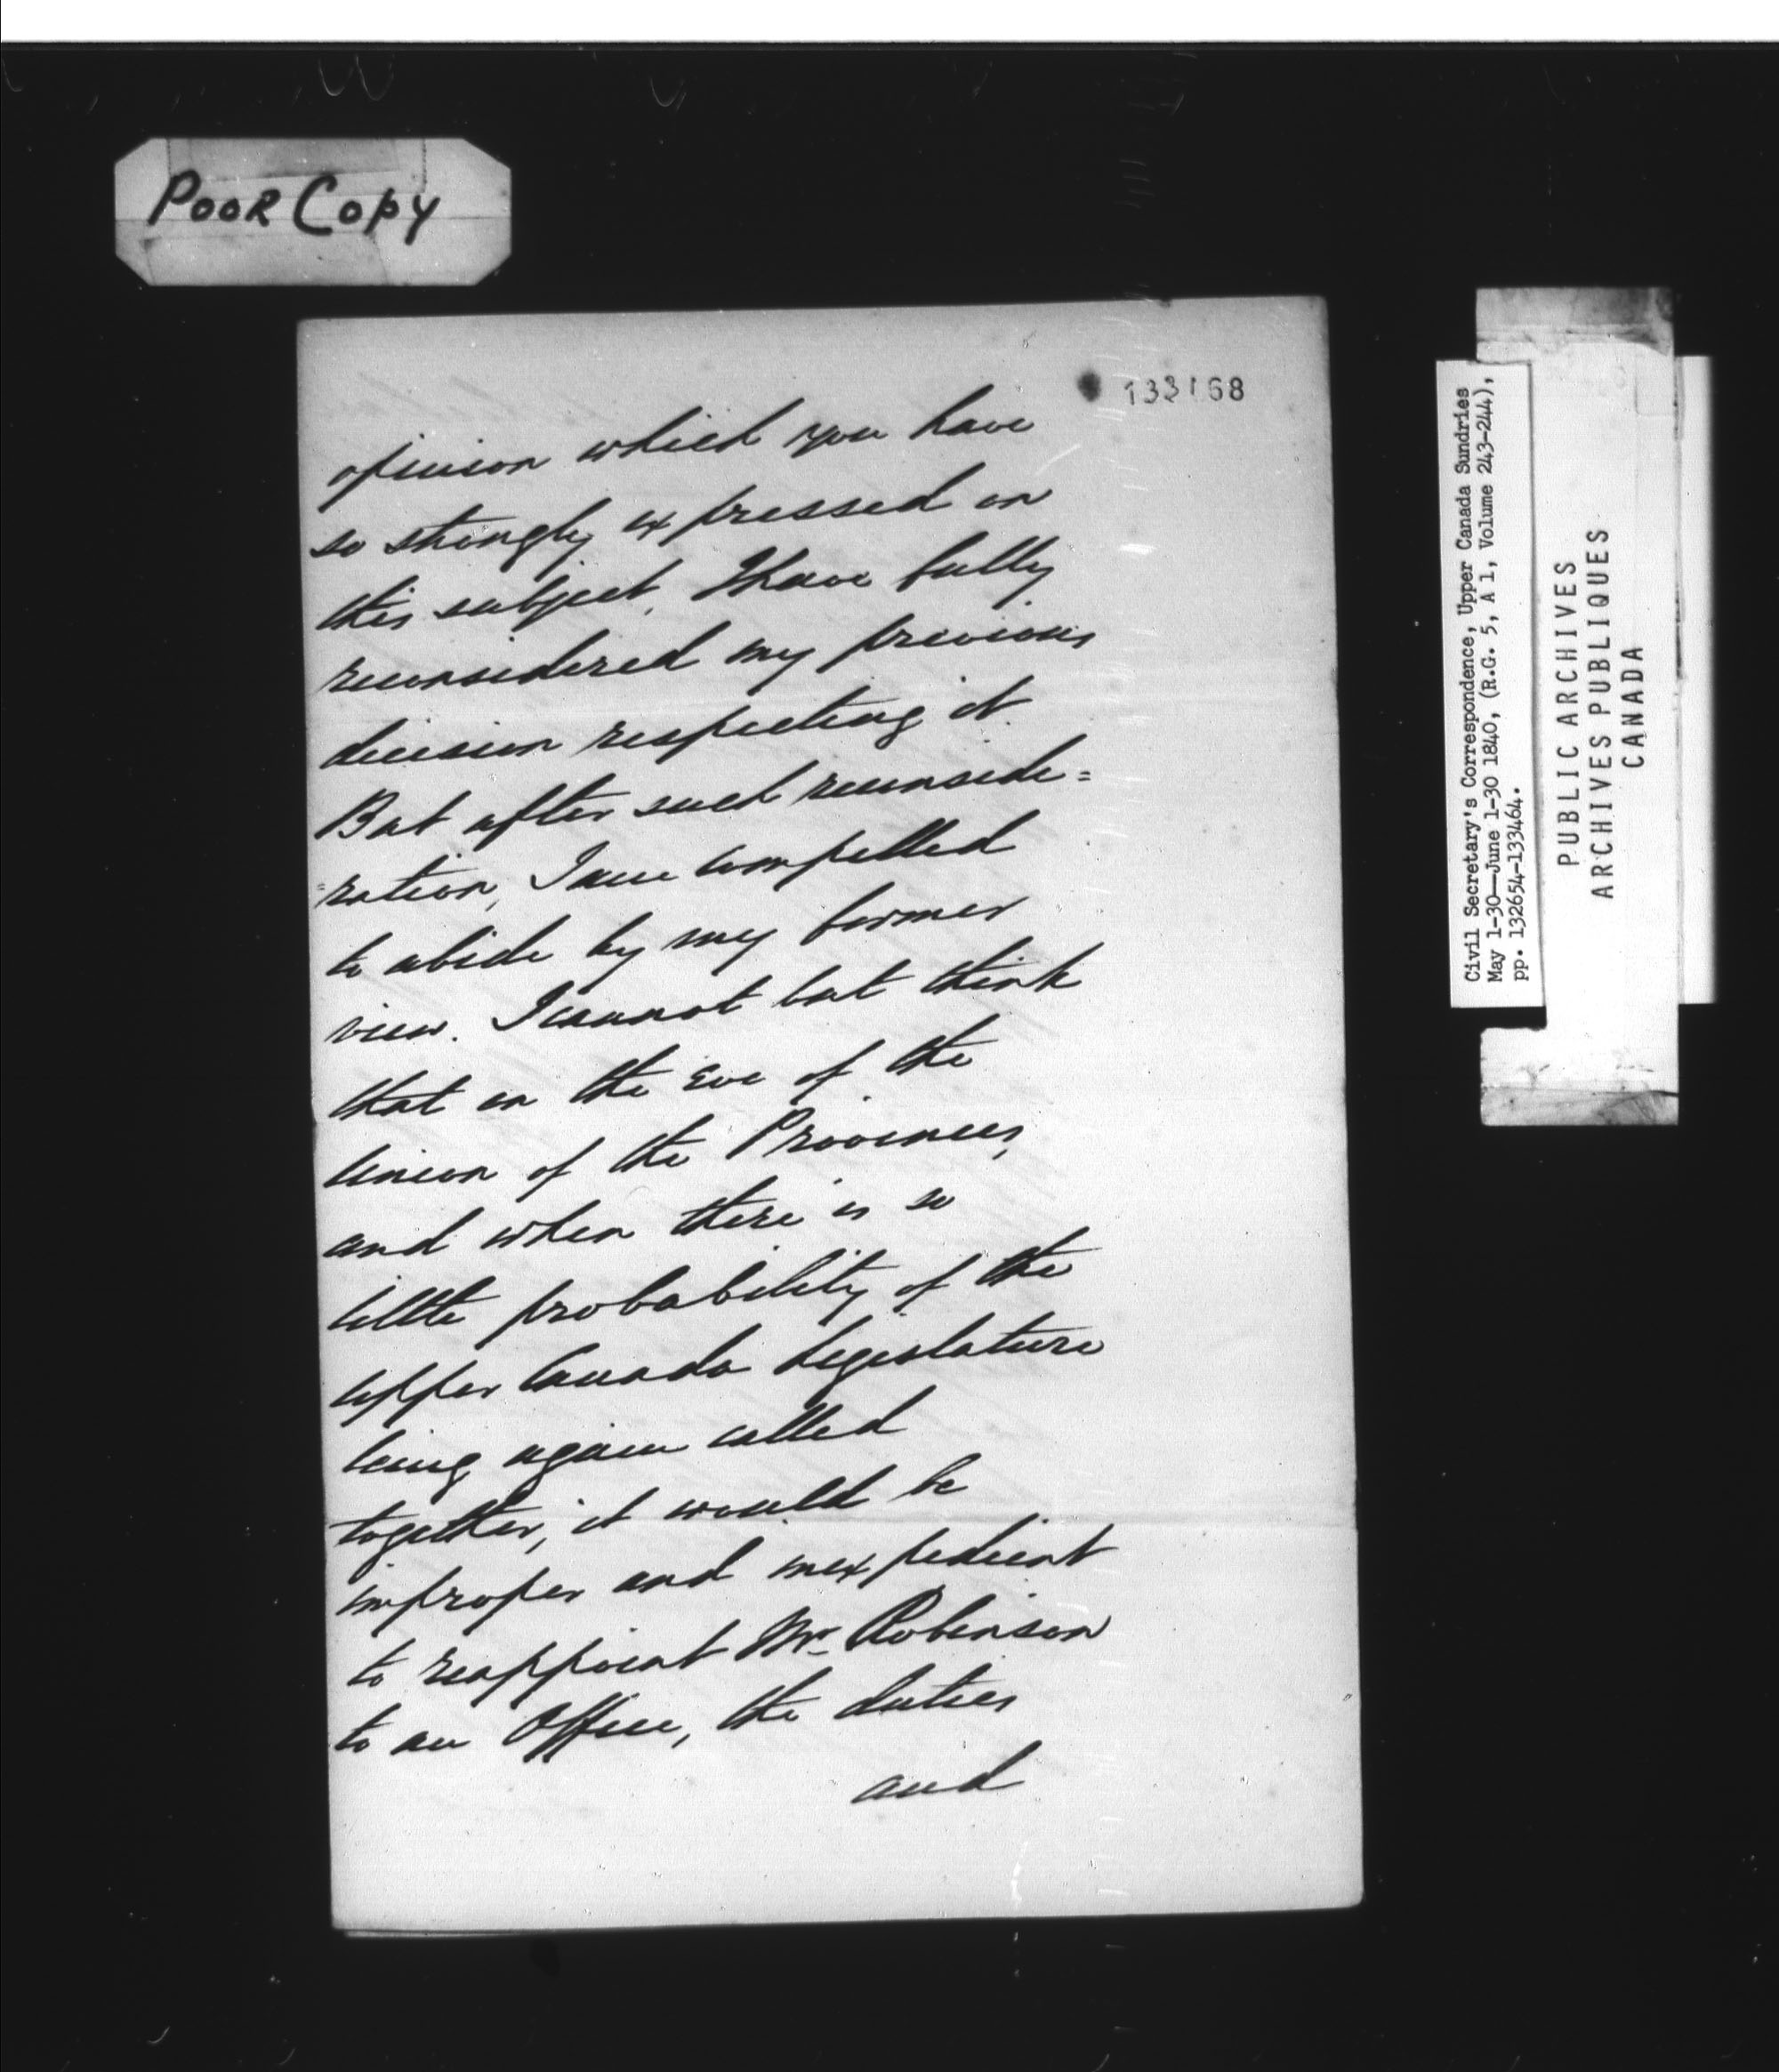 POOR COPY
133168
opinion which you have
so strongly expressed on
this subject, I have fully
reconsidered my previous
decision respecting it.
But after such reconside=
=ration, I am compelled
to abide by my former
view. I cannot but think
that on the Eve of the
Union of the Provinces,
and when there is so
little probability of the
Upper Canada Legislature
being again called
together, it would be
improper and inexpedient
to reappoint Mr. Robinson
to an Office, the duties
and
Civil Secretary's Correspondence, Upper Canada Sundries
May 1-30—June 1-30 1840, (R.G. 5, A 1, Volume 243-244),
pp. 132654-133464.
PUBLIC ARCHIVES
ARCHIVES PUBLIQUES
CANADA